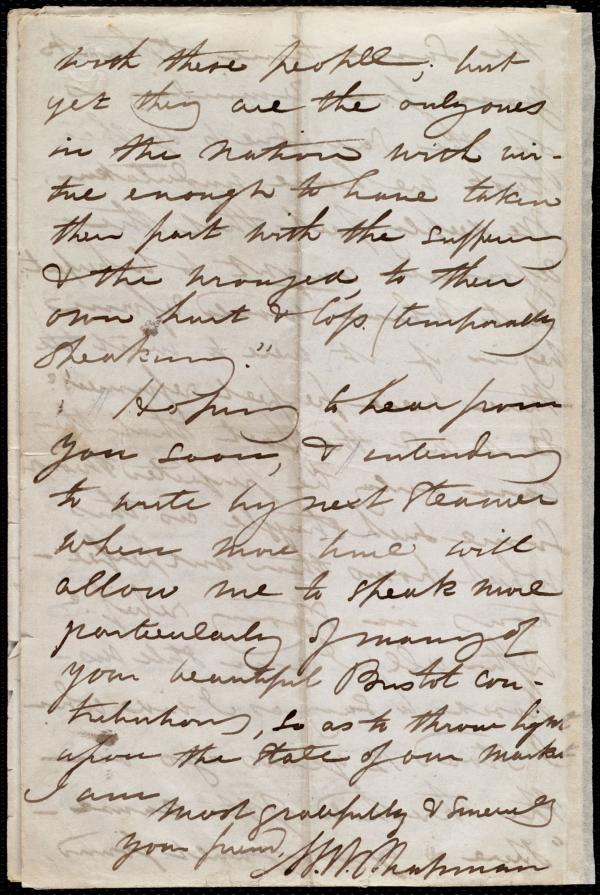 with these people; but
yet they are the only ones
in the nation with vir-
tue enough to have taken
their part with the suffering
& the wronged, to their
own hurt & loss (temporally
speaking."
Hoping to hear from
you soon, & intending
to write by next Steamer
when more time will
allow me to speak more
particularly of many of
your beautiful Bristol con-
tributions, so as to throw light
upon the state of our market
I am
most gratefully & sincerely
your friend,
M. W. Chapman